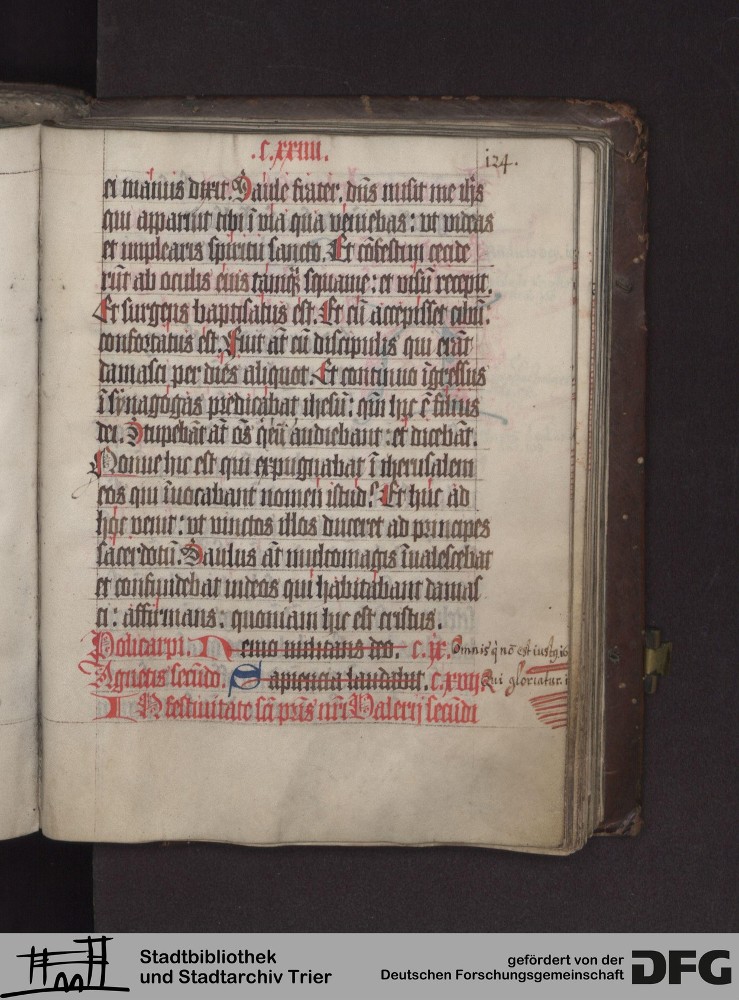 .c.xxiiii.
124.
ei manus dixit. Saule frater. dn̄s misit me ih̄s
qui apparuit tibi ī via qua veniebas: vt videas
et implearis spiritu sancto. Et cōfestim cecide
rūt ab oculis eius tāmq̄ squame: et visū recepit.
Et surgens baptisatus est. Et cū accepisset cibū.
confortatus est. Fuit āt cū discipulis qui erāt
damasci per dies aliquot. Et continuo īgressus
ī synagogas predicabat ihesū: qm̄ hic ē filius
dei. Stupebāt āt om̄s q̄ eū audiebant: et dicebāt.
Nonne hic est qui expugnabat ī iherusalem
eos qui īuocabant nomen istud? Et huc ad
hoc venit: vt vinctos illos duceret ad principes
sacerdotū. Saulus āt multomagis īualescebat
et confundebat iudeos qui habitabant damas
ci: affirmans: quoniam hic est cristus.
Policarpi. Nemo militans deo. c.ix. Omnis q̄ nō est iust9
Agnetis secūdo. Sapiencia laudabit. c.xviij Qui gloriatur.
In festiuitate sc̄i pr̄is nr̄i Valerij secūdi
Stadtbibliothek
und Stadtarchiv Trier
gefördert von der
Deutschen Forschungsgemeinschaft
DFG